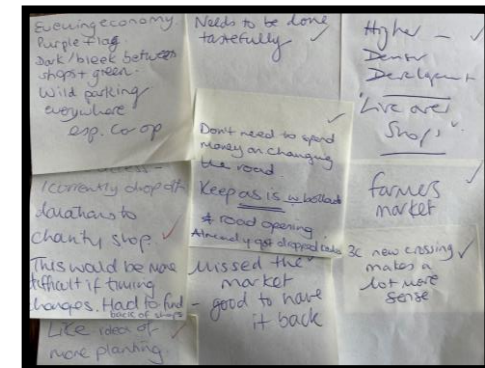 Evening economy.
Purple flag.
Dark/bleek between
shops + green.
Wild parking
everywhere
esp. co-op
I currently drop off
donations to
charity shop.
This would be more
difficult if timing
changes. Hard to find
back of shops
Like idea of
more planting.
Needs to be done
tastefully
Don't need to spend
money on changing
the road.
Keep as is w bollard
& road opening.
Already got dropped
Missed the
market
- good to have
it back
Higher -
Denser
Development
"Live over
Shops".
farmers
market
3c new crossing
makes a
lot more
sense